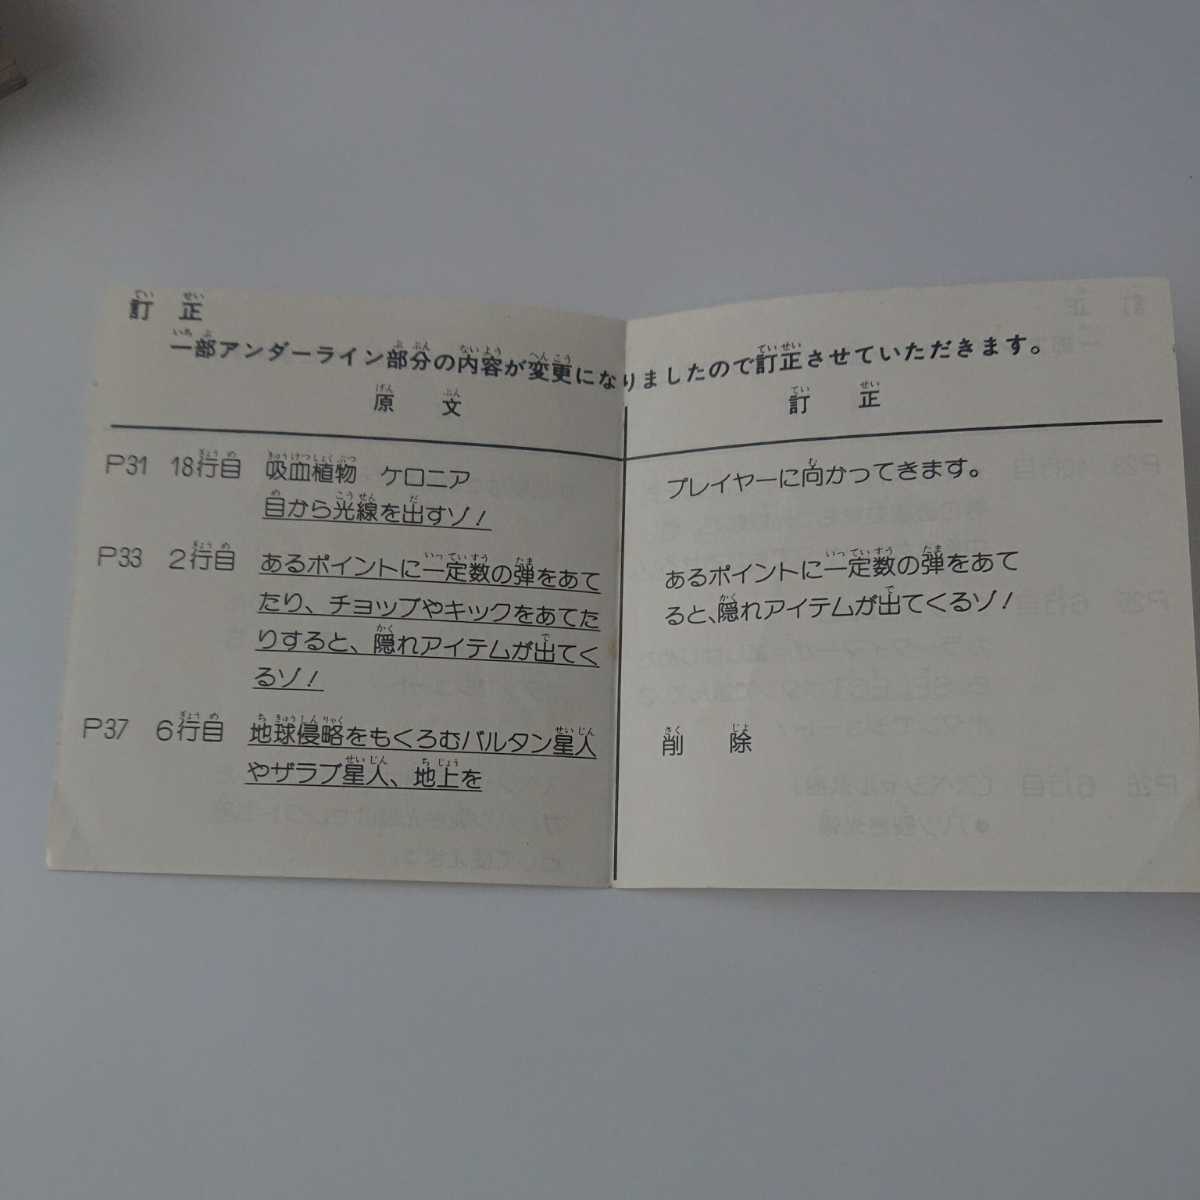 訂正
一部アンダーライン部分の内容が変更になりましたので訂正させていただきます。
原文
訂正
P31 18行目 吸血植物 ケロニア
目から光線を出すゾ!
プレイヤーに向かってきます。
P33 2行目 あるポイントに一定数の弾をあて
たり、チョップやキックをあてた
りすると、隠れアイテムが出てく
るゾ!
あるポイントに一定数の弾をあて
ると、隠れアイテムが出てくるゾ!
P37 6行目 地球侵略をもくろむバルタン星人
やザラブ星人、地上を
削除